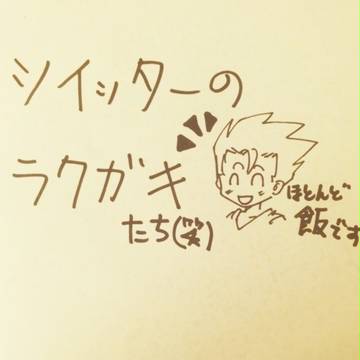 シイッターの
ラクガキ
たち(笑)
ほとんど
飯です